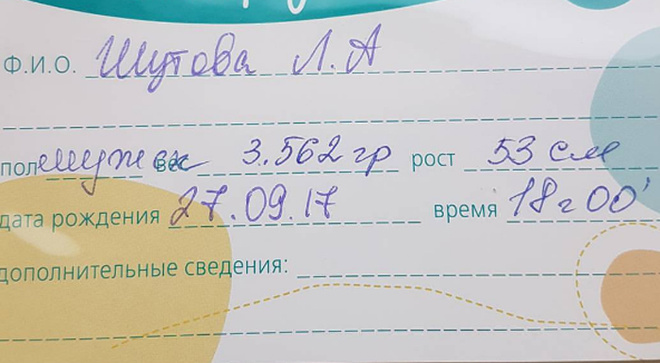 Ф.И.О. Шутова Л.А
пол мужск вес 3.562 гр рост 53 см
дата рождения 27.09.17 время 18 г 00'
дополнительные сведения: